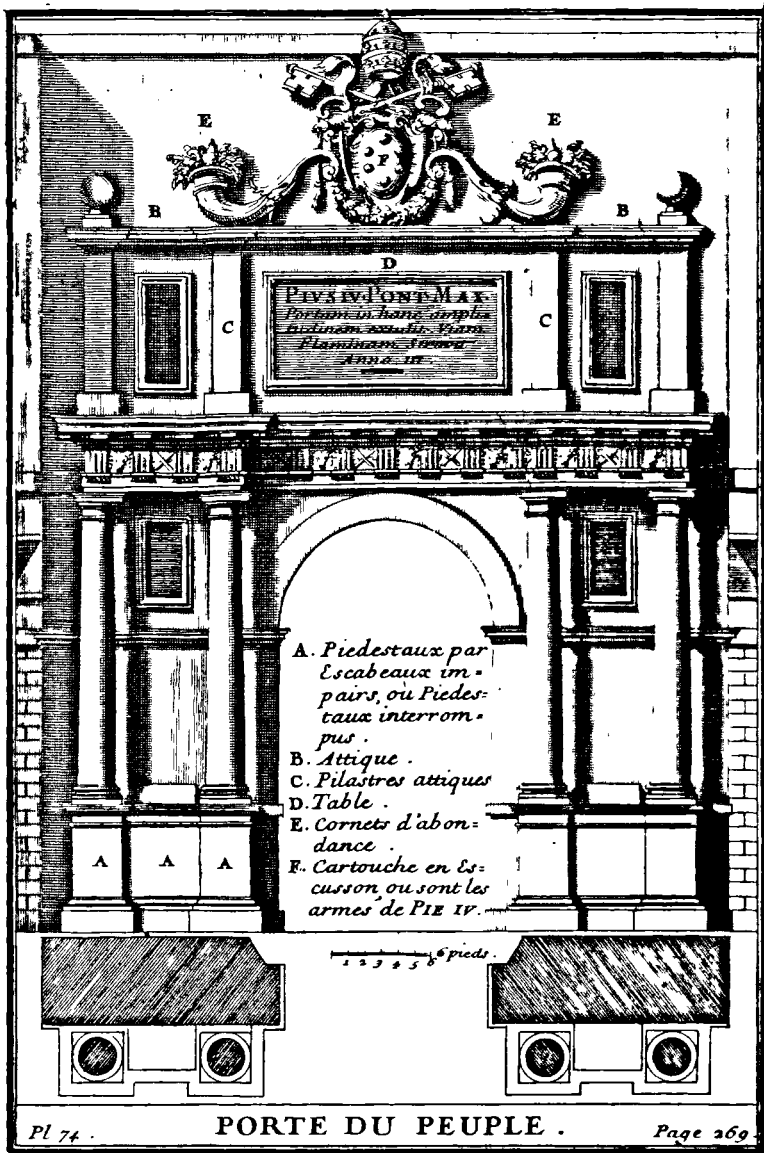 E
E
F
B
B
D
PIVS·IV·PONT·MAX·
Portam in hanc ampli
tudinem extulit Viam
Flaminiam Stravit
Anno III
C
C
A. Piedestaux par
Escabeaux im=
pairs, ou Piedes=
taux interrom=
pus.
B. Attique.
C. Pilastres attiques
D. Table.
E. Cornets d'abon=
dance.
F. Cartouche en Es=
cusson ou sont les
armes de PIE IV.
A A A
1 2 3 4 5 6 pieds.
Pl 74. PORTE DU PEUPLE. Page 269.